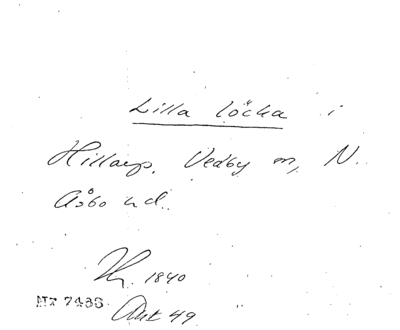 Lilla löcka i
Hillarp, Vedby sn, N.
Åsbo hd.
1840
NT 7486
Ant 49